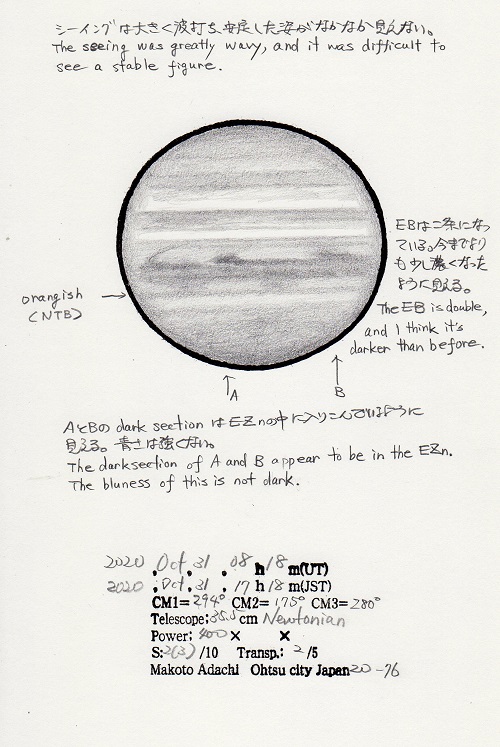 シーイングは大きく波打ち、安定した姿がなかなか見えない。
The seeing was greatly wavy, and it was difficult to
see a stable figure.
EBは二条になっ
ている。今までより
も少し濃くなった
ように見える。
The EB is double,
and I think it's
darker than before.
orangish
(NTB)
A
B
AとBの dark section は EZnの中に入りこんでいるように
見える。青さは強くない。
The darksection of A and B appear to be in the EZn.
The bluness of this is not dark.
2020 , Oct , 31 , 08 h 18 m(UT)
2020 , Oct , 31 , 17 h 18 m(JST)
CM1= 294° CM2= 175° CM3= 280°
Telescope; 35.5 cm Newtonian
Power; 400 × ×
S: 2(3) /10 Transp.: 2 /5
Makoto Adachi Ohtsu city Japan 20-76